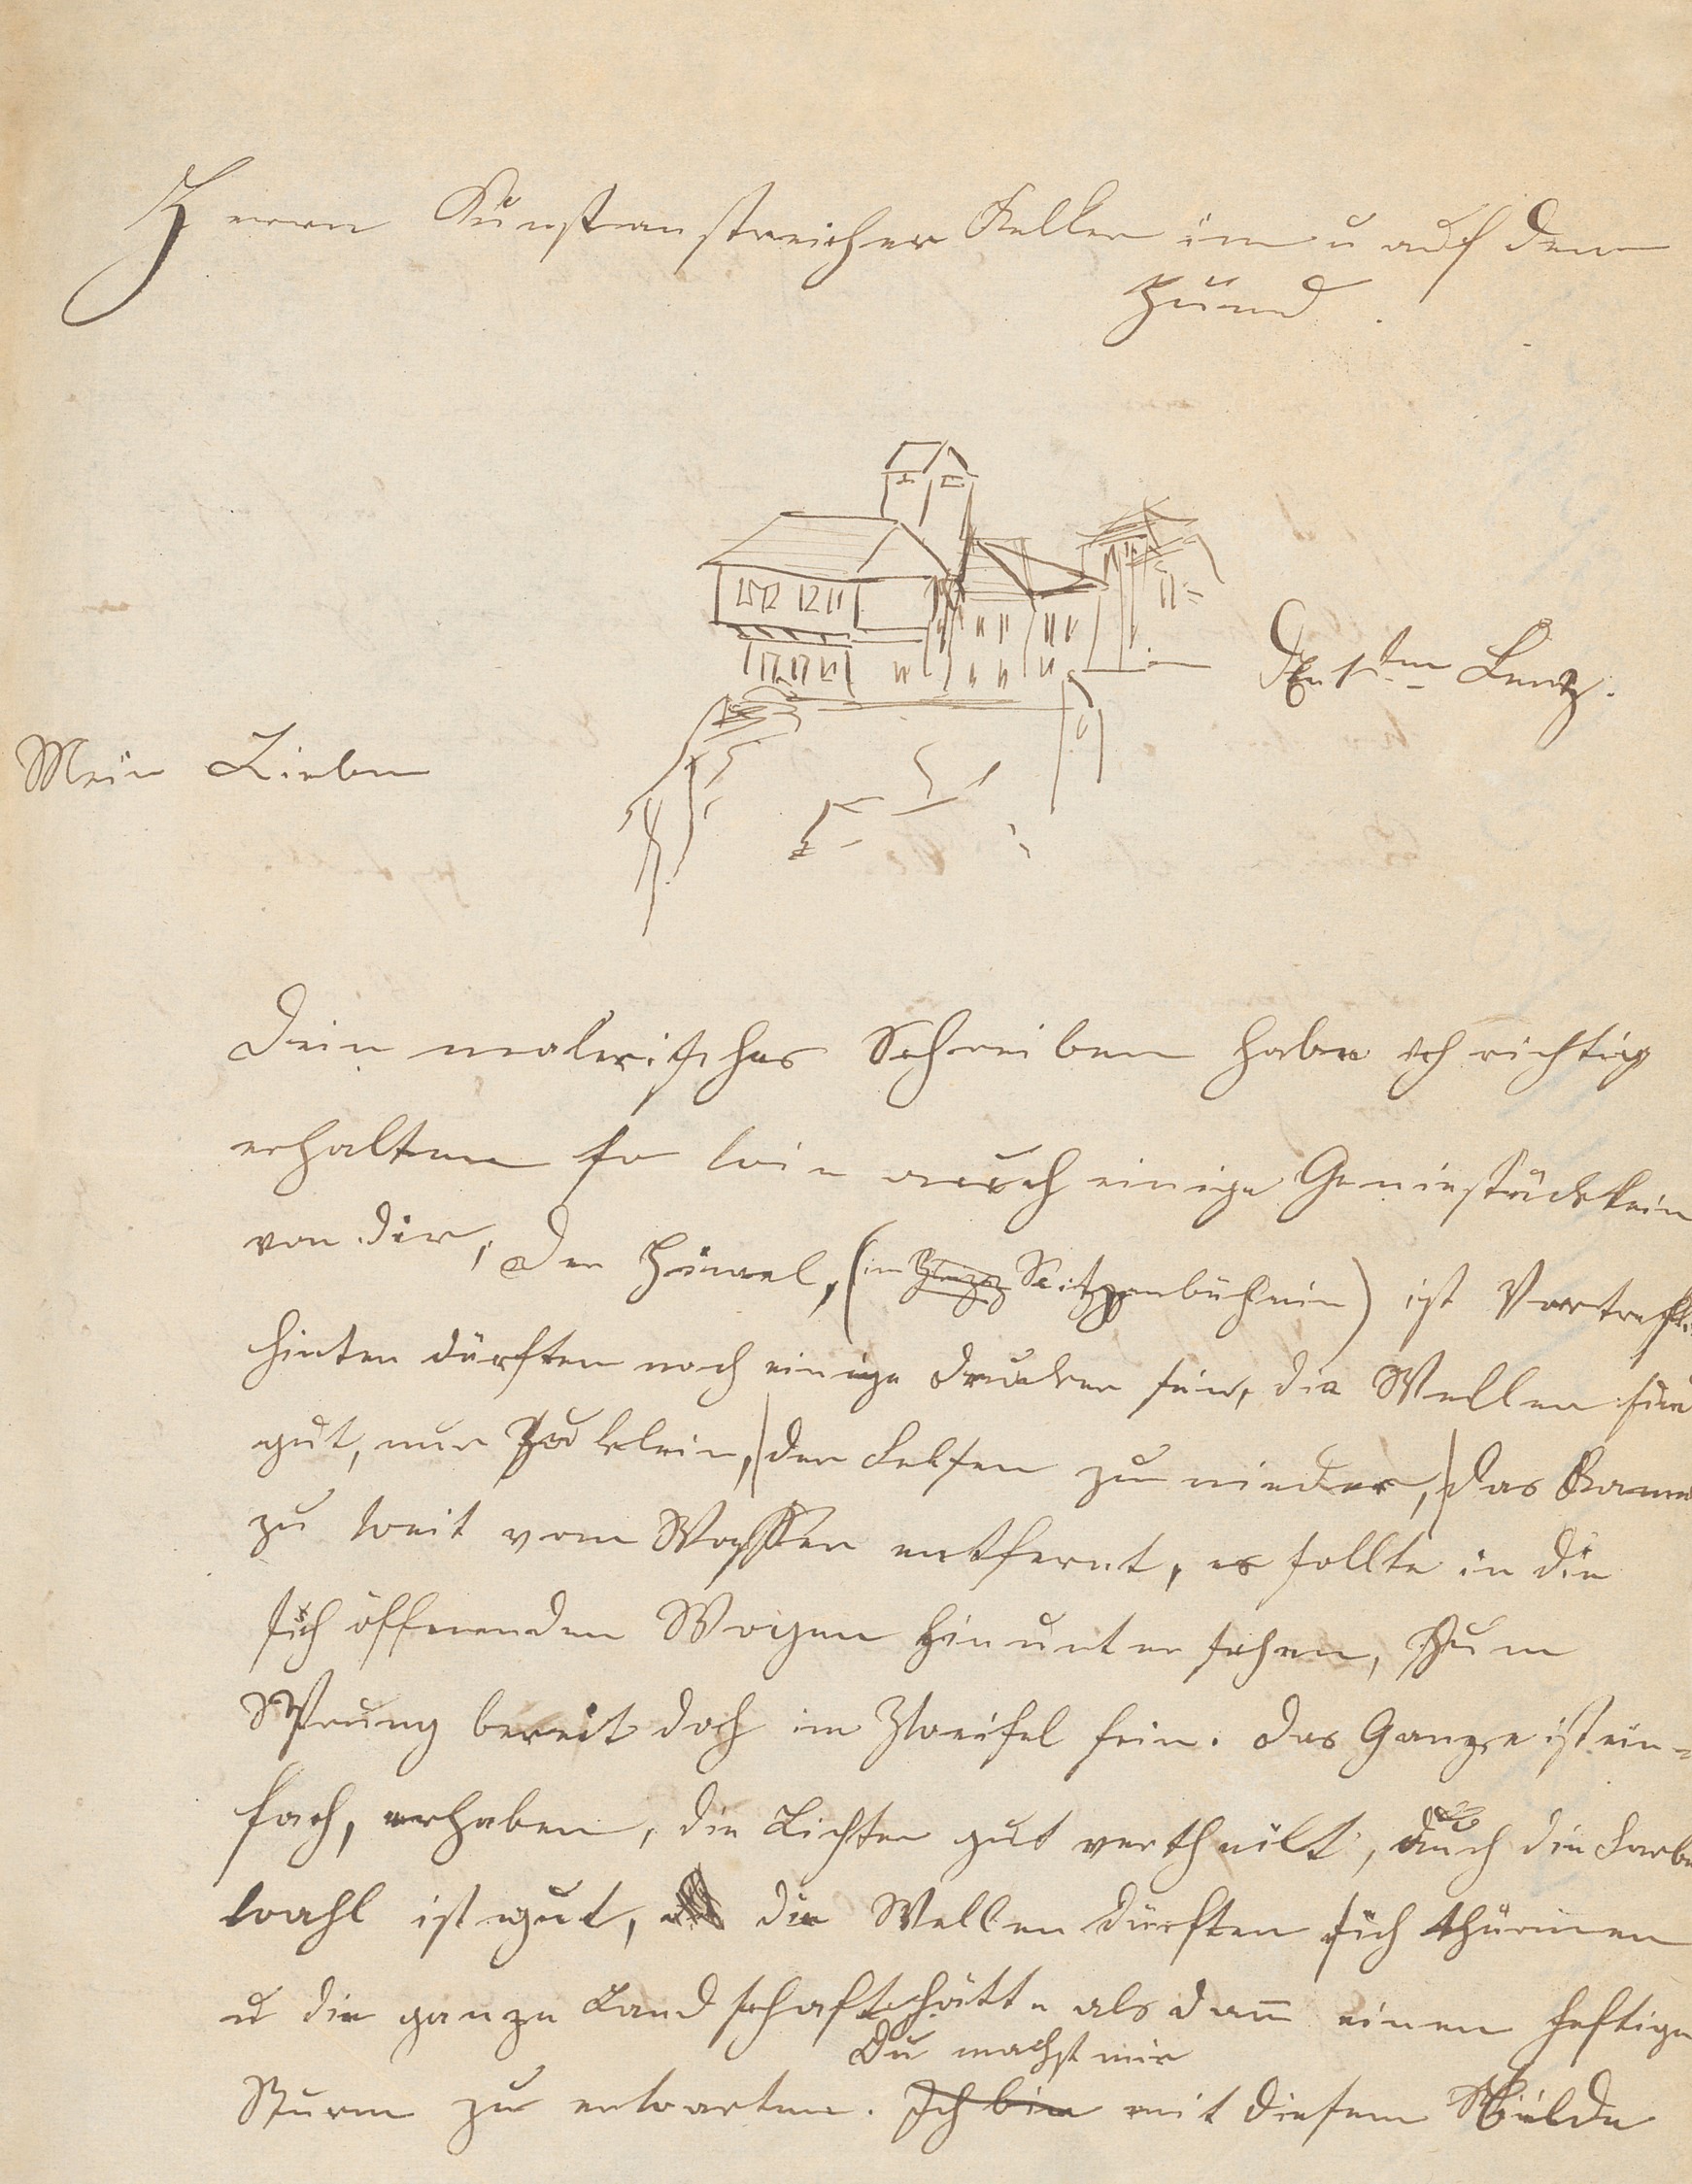 Herrn Kunstanstreicher Keller im u auf dem
Hund.
Den 1ten Lenz.
Mein Lieber
Dein malerisches Schreiben habe ich richtig
erhalten so wie auch einige Geniestücklein
von dir, Der Himel, (im Spitzenbüchein) ist Vortreffl.
hinten dürften noch einige Drucker sein, die Wellen sind
gut, nur zu klein, der Felsen zu nieder, das
zu weit vom Wasser entfernt, es sollte in die
sich öffnenden Wogen hinunter sehen, Zum
Sprung bereit doch im Zweifel sein. Das Ganze ist ein-
fach, erhaben, die Lichter gut vertheilt, auch die Farbe
wahl ist gut, die Wellen dürften sich thürmen
u die ganze Landschaft hätte als dann einen heftige
Du machst mir
Sturm zu erwarten. Ich bin mit diesem Bilde